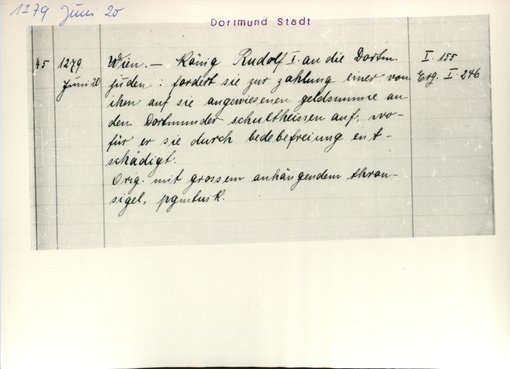 1279 Juni 20
Dortmund Stadt
45 1279 Wien. — König Rudolf I. an die Dortm. I. 155
Juni 20 juden: fordert sie zur zahlung einer von Erg. I 246
ihm auf sie angewiesenen geldsumme an
den Dortmunder schultheissen auf, wo-
für er sie durch bedebefreiung ent-
schädigt.
Orig. mit grossem anhängendem thron-
sigel,